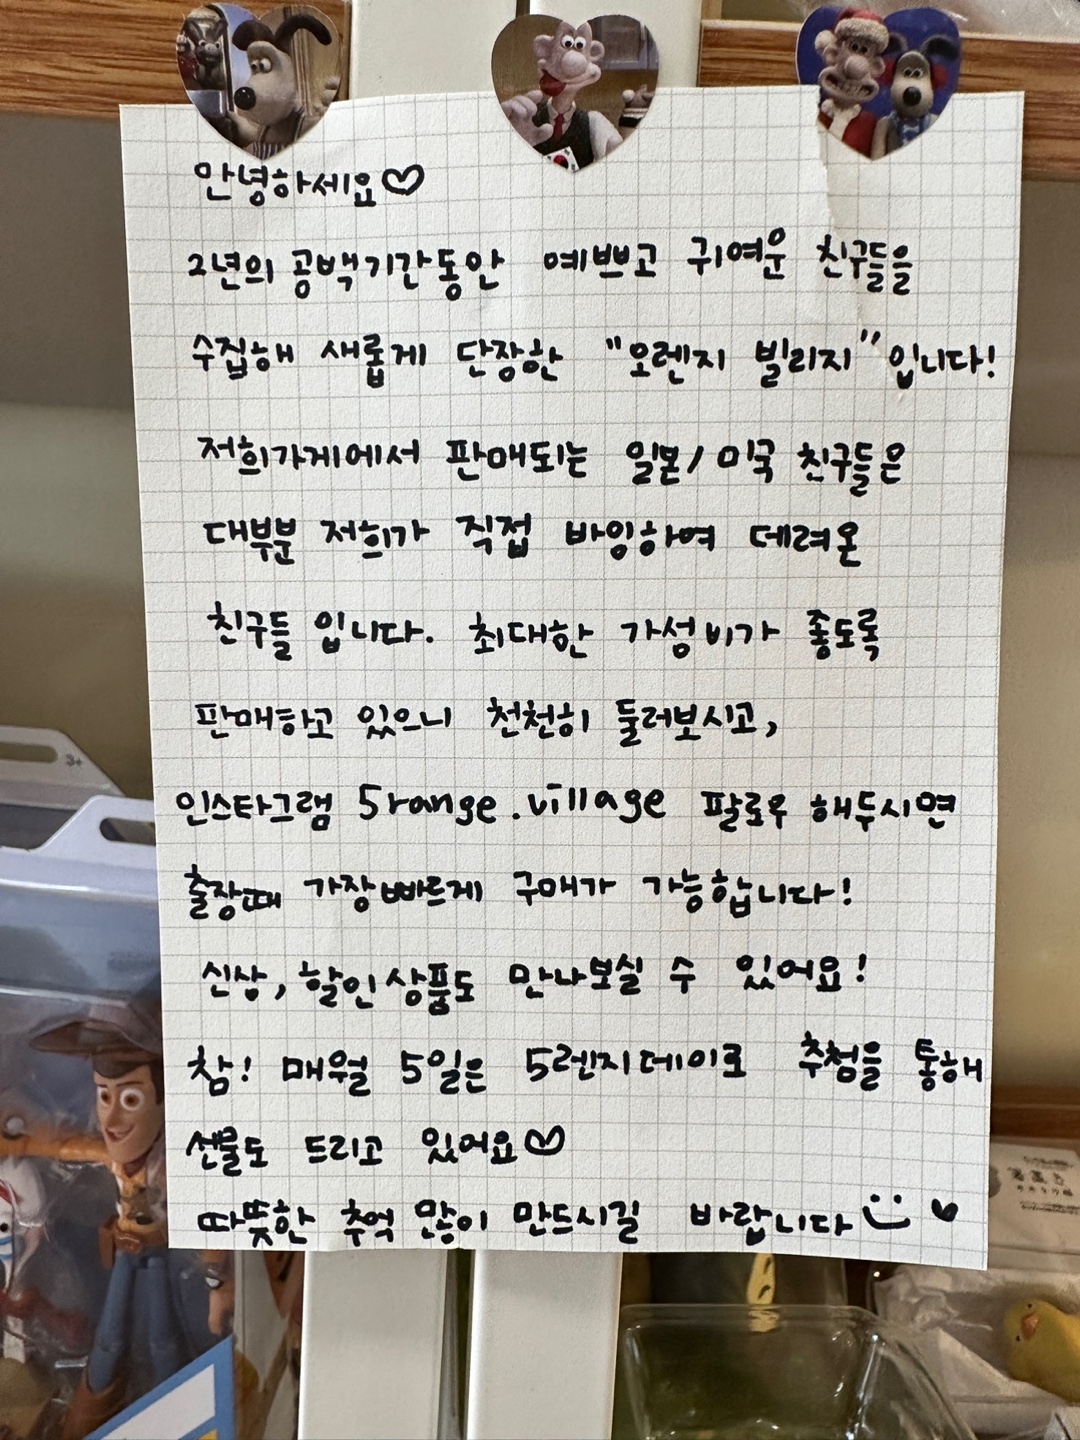 안녕하세요♡
2년의 공백기간동안 예쁘고 귀여운 친구들을
수집해 새롭게 단장한 "오렌지 빌리지"입니다!
저희가게에서 판매되는 일본/미국 친구들은
대부분 저희가 직접 바잉하여 데려온
친구들 입니다. 최대한 가성비가 좋도록
판매하고 있으니 천천히 둘러보시고,
인스타그램 5range.village 팔로우 해두시면
출장때 가장 빠르게 구매가 가능합니다!
신상, 할인상품도 만나보실 수 있어요!
참! 매월 5일은 5렌지데이로 추첨을 통해
선물도 드리고 있어요♡
따뜻한 추억 많이 만드시길 바랍니다
3+